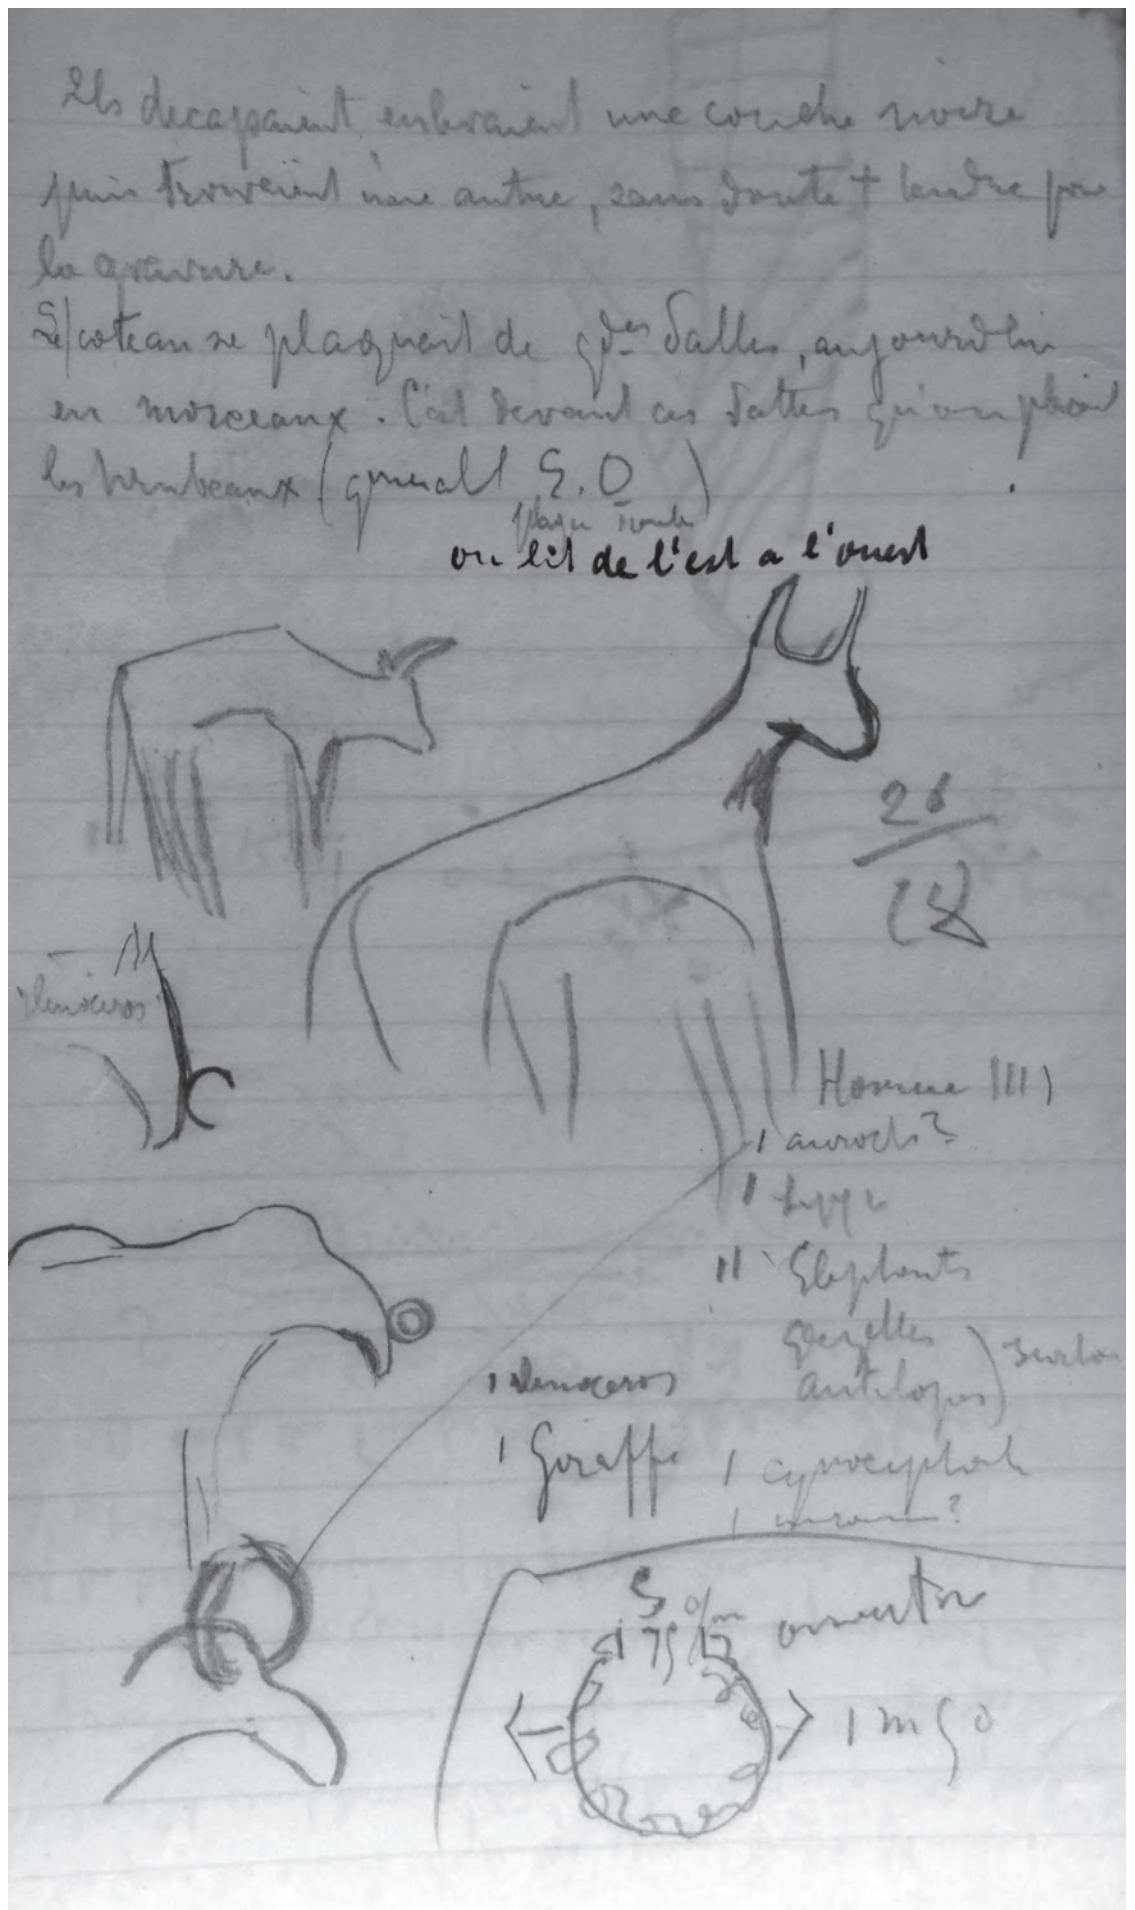 Ils decapaient enlevaient une couche noire
puis trouvaient une autre, sans doute + tendre pour
la gravure.
Le coteau se plaquait de gdes dalles, aujourd'hui
en morceaux. C'est devant ces dalles qu'on plaçait
les tombeaux (generalt E.O)
ou lit de l'est a l'ouest
26
rhinoceros
Homme IIII)
1 aurochs?
II
II Elephants
gazelles
antilopes)
1 rhinoceros
1 Giraffe
1 cynocephale
1
S
ouverture
1 m 50